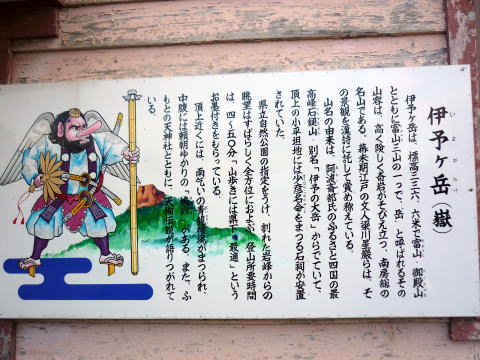 伊予ヶ岳(嶽)
いよがたけ
伊予ヶ岳は、標高三三六、六米で富山、御殿山
とともに富山三山の一つで、「岳」と呼ばれるその
山容は、高く険しく奇岩がそびえ立つ、南房総の
名山である。幕末期江戸の文人梁川星巌らは、そ
の景観を漢詩に託して賞め称えている。
山名の由来は、阿波斎部氏のふるさと四国の最
高峰石鎚山、別名「伊予の大岳」からでていて、
頂上の小平坦地には少彦名命をまつる石祠が安置
されていた。
県立自然公園の指定をうけ、割れた岩峰からの
眺望はすばらしく全方位におよぶ。登山所要時間
は、四く五〇分、山歩きには県下「最適」という
お墨付きをもらっている。
頂上近くには、雨乞いの
がまつられ、
中腹には頼朝ゆかりの
がある。また、ふ
もとの天神社とともに、天狗伝説が語りつがれて
いる。